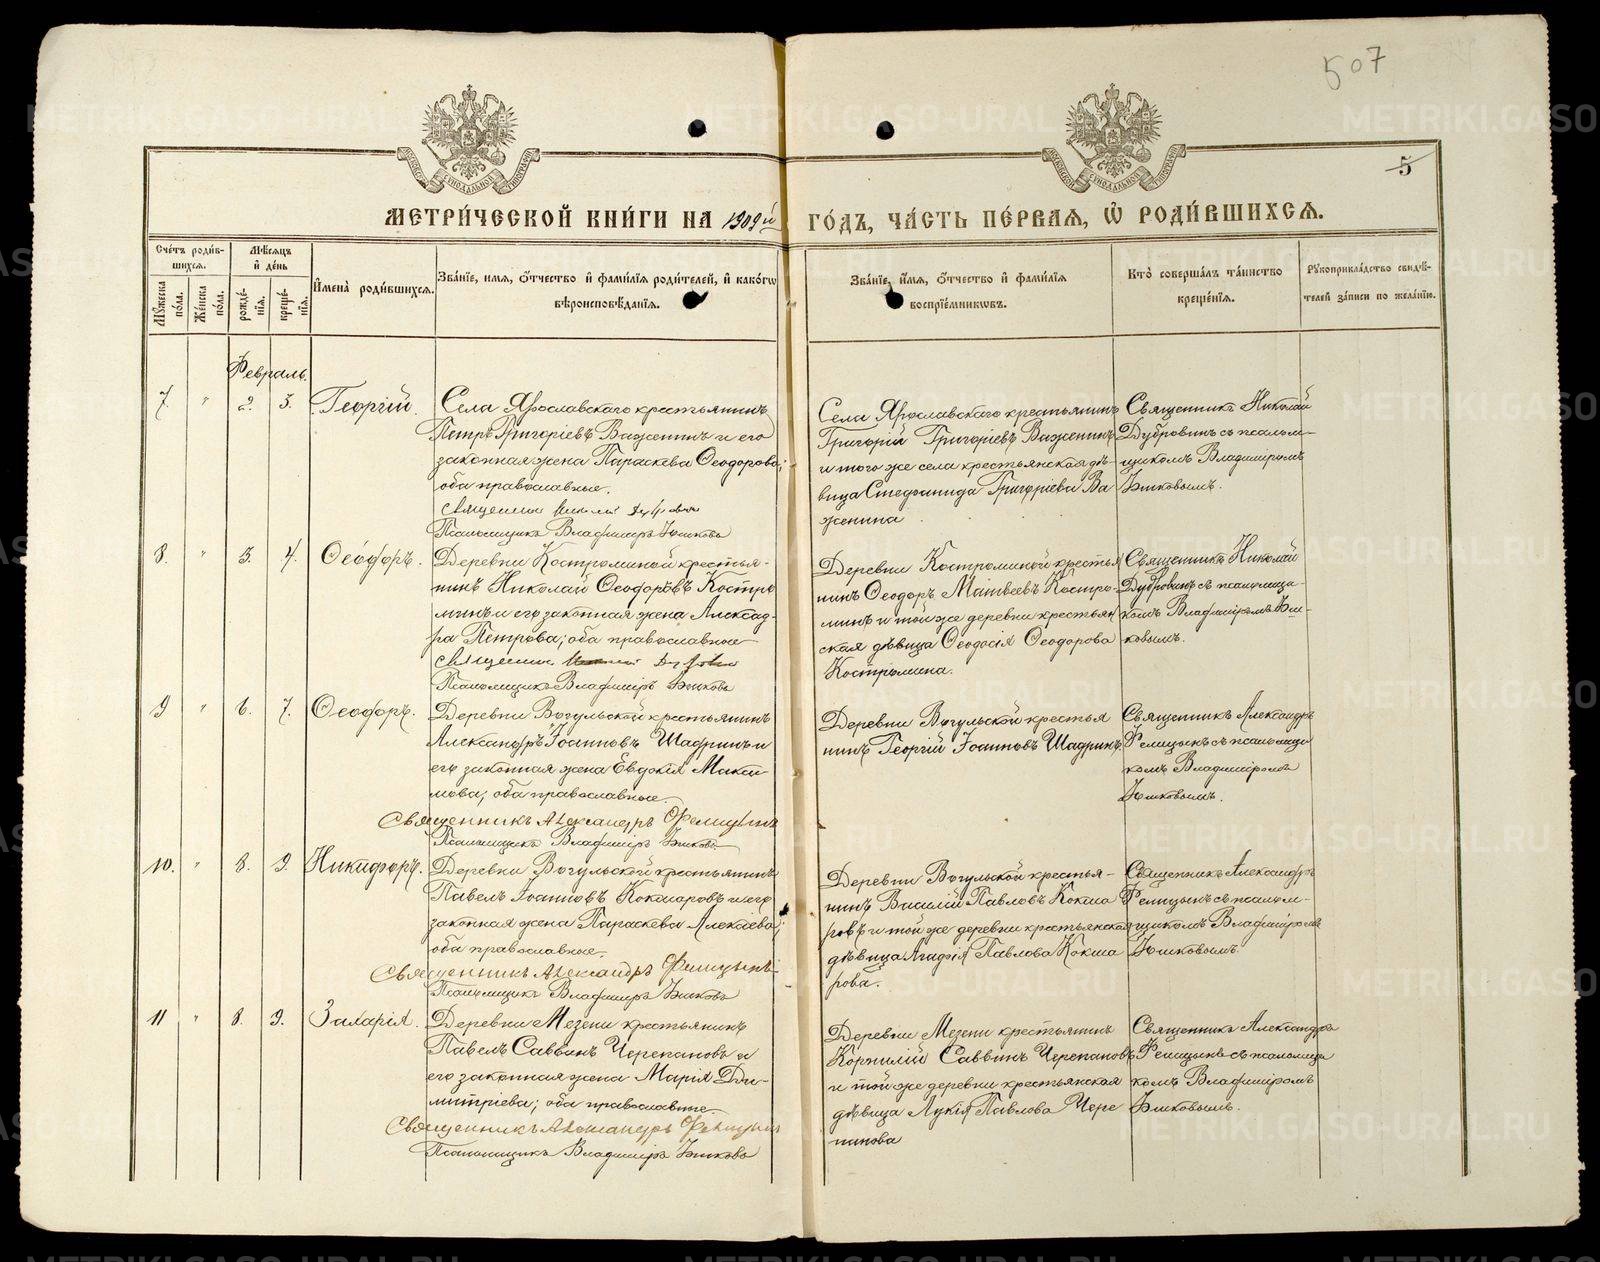 507
5
МЕТРИ́ЧЕСКОЙ КНИ́ГИ НА 1909й ГО́ДЪ, ЧА́СТЬ ПЕ́РВАЯ, Ѡ҆ РОДИ́ВШИХСЯ.
Сче́тъ роди́в-
шихся.
Му́жеска по́ла.
Же́нска по́ла.
Мѣ́сяцъ
и҆ де́нь
рожде́-
нїя.
креще́-
нїя.
И҆мена̀ роди́вшихся.
Зва́нїе, и҆мя, о҆́тчество и҆ фами́лїя роди́телей, и҆ како́гѡ
вѣроисповѣ́данїя.
Зва́нїе, и҆́мя, о҆́тчество и҆ фами́лїя
воспрїе́мниковъ.
Кто̀ соверша́лъ та́инство
креще́нїя.
Рꙋкоприкла́дство свидѣ́-
телей за́писи по жела́нїю.
Февраль.
7.
"
2.
3.
Георгій.
Села Ярославскаго крестьянинъ
Петръ Григоріевъ Важенинъ и его
законная жена Параскева Ѳеодорова;
оба православные.
Священникъ Николай Дубровинъ
Псаломщикъ Владиміръ Быковъ
Села Ярославскаго крестьянинъ
Григорій Григоріевъ Важенинъ
и того же села крестьянская дѣ-
вица Стефанида Григоріева Ва
женина
Священникъ Николай
Дубровинъ съ псалом-
щикомъ Владиміромъ
Быковымъ.
8.
"
3.
4.
Ѳеодоръ.
Деревни Костроминой крестья-
нинъ Николай Ѳеодоровъ Костро
минъ и его законная жена Алексад-
ра Петрова; оба православные
Священникъ Николай Дубровинъ
Псаломщикъ Владиміръ Быковъ
Деревни Костроминой крестья
нинъ Ѳеодоръ Матвеевъ Костро-
минъ и той же деревни крестьян
ская дѣвица Ѳеодосія Ѳеодорова
Костромина.
Священникъ Николай
Дубровинъ съ псаломщи-
комъ Владиміромъ Бы-
ковымъ.
9
"
6.
7.
Ѳеодоръ.
Деревни Вогульской крестьянинъ
Александръ Іоанновъ Шадринъ и
его законная жена Евдокія Макси
мова; оба православные.
Священникъ Александръ Фелицынъ
Псаломщикъ Владиміръ Быковъ
Деревни Вогульской крестья
нинъ Георгій Іоанновъ Шадринъ
Священникъ Александръ
Фелицынъ съ псаломщи
комъ Владиміромъ
Быковымъ.
10.
"
8.
9.
Никифоръ.
Деревни Вогульской крестьянинъ
Павелъ Іоанновъ Кокшаровъ и его
законная жена Параскева Алексіева;
оба православные.
Священникъ Александръ Фелицынъ
Псаломщикъ Владиміръ Быковъ
Деревни Вогульской крестья-
нинъ Василій Павловъ Кокша
ровъ и той же деревни крестьянская
дѣвица Агафія Павлова Кокша
рова.
Священникъ Александръ
Фелицынъ съ псалом-
щикомъ Владиміромъ
Быковымъ.
11
"
8.
9.
Захарія.
Деревни Мезени крестьянинъ
Павелъ Саввинъ Черепановъ и
его законная жена Марія Ди-
митріева; оба православные.
Священникъ Александръ Фелицынъ
Псаломщикъ Владиміръ Быковъ
Деревни Мезени крестьянинъ
Корнилій Саввинъ Черепановъ
и той же деревни крестьянская
дѣвица Лукія Павлова Чере
панова
Священникъ Александръ
Фелицынъ съ псаломщи
комъ Владиміромъ
Быковымъ.
METRIKI.GASO-URAL.RU